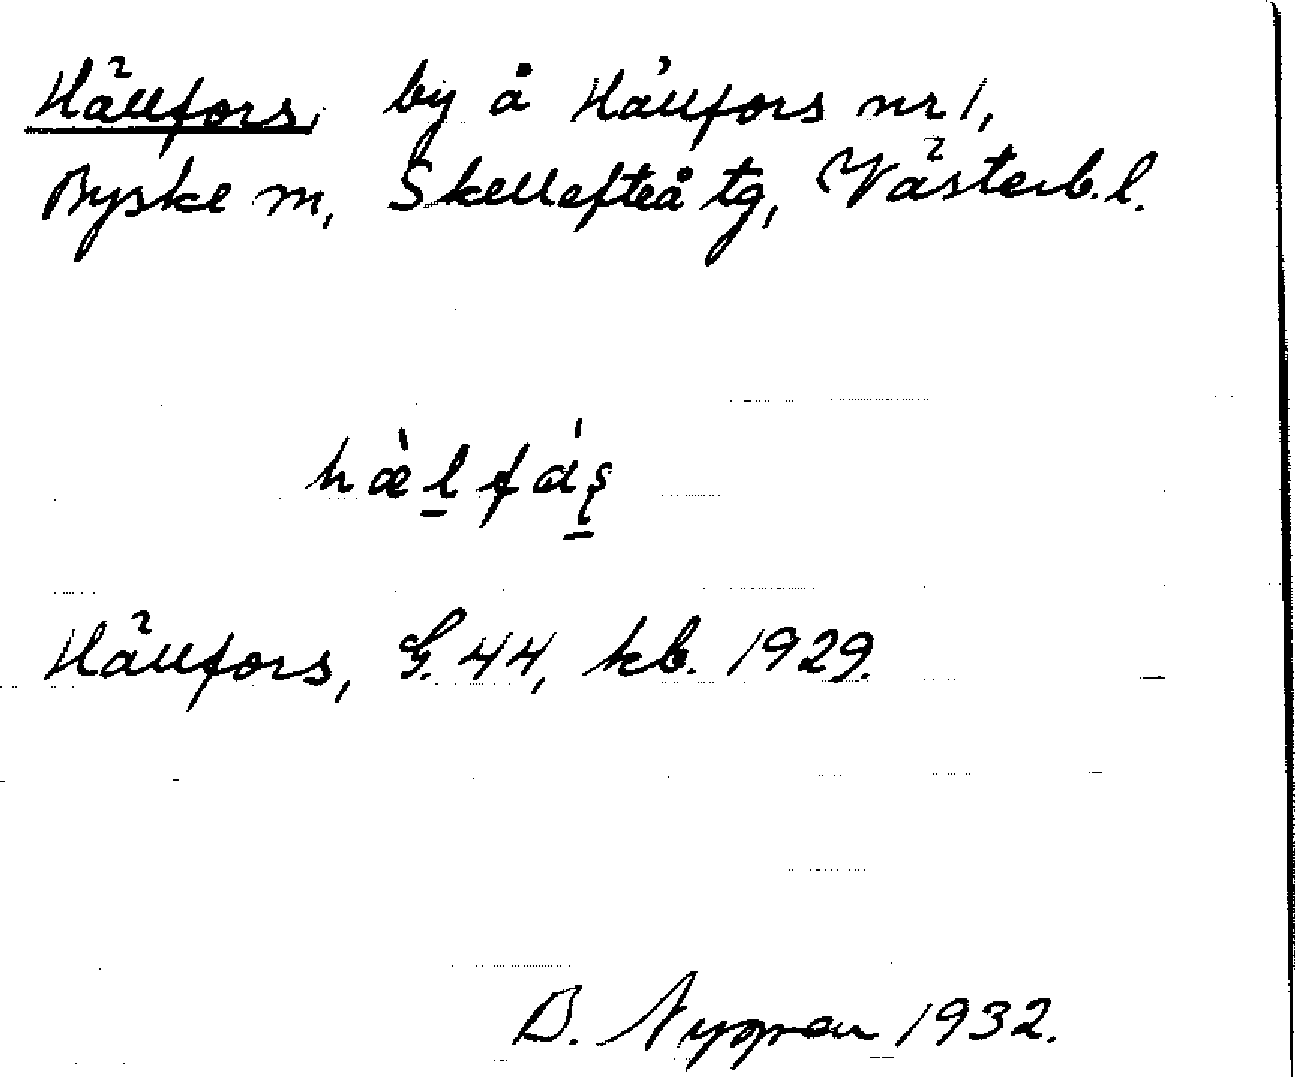 Hällfors, by å Hällfors nr 1,
Byske sn, Skellefteå tg, Västerb. l.
hæ̀l̠fá̠ş
Hällfors, G. 44, kb. 1929.
B. Nygren 1932.